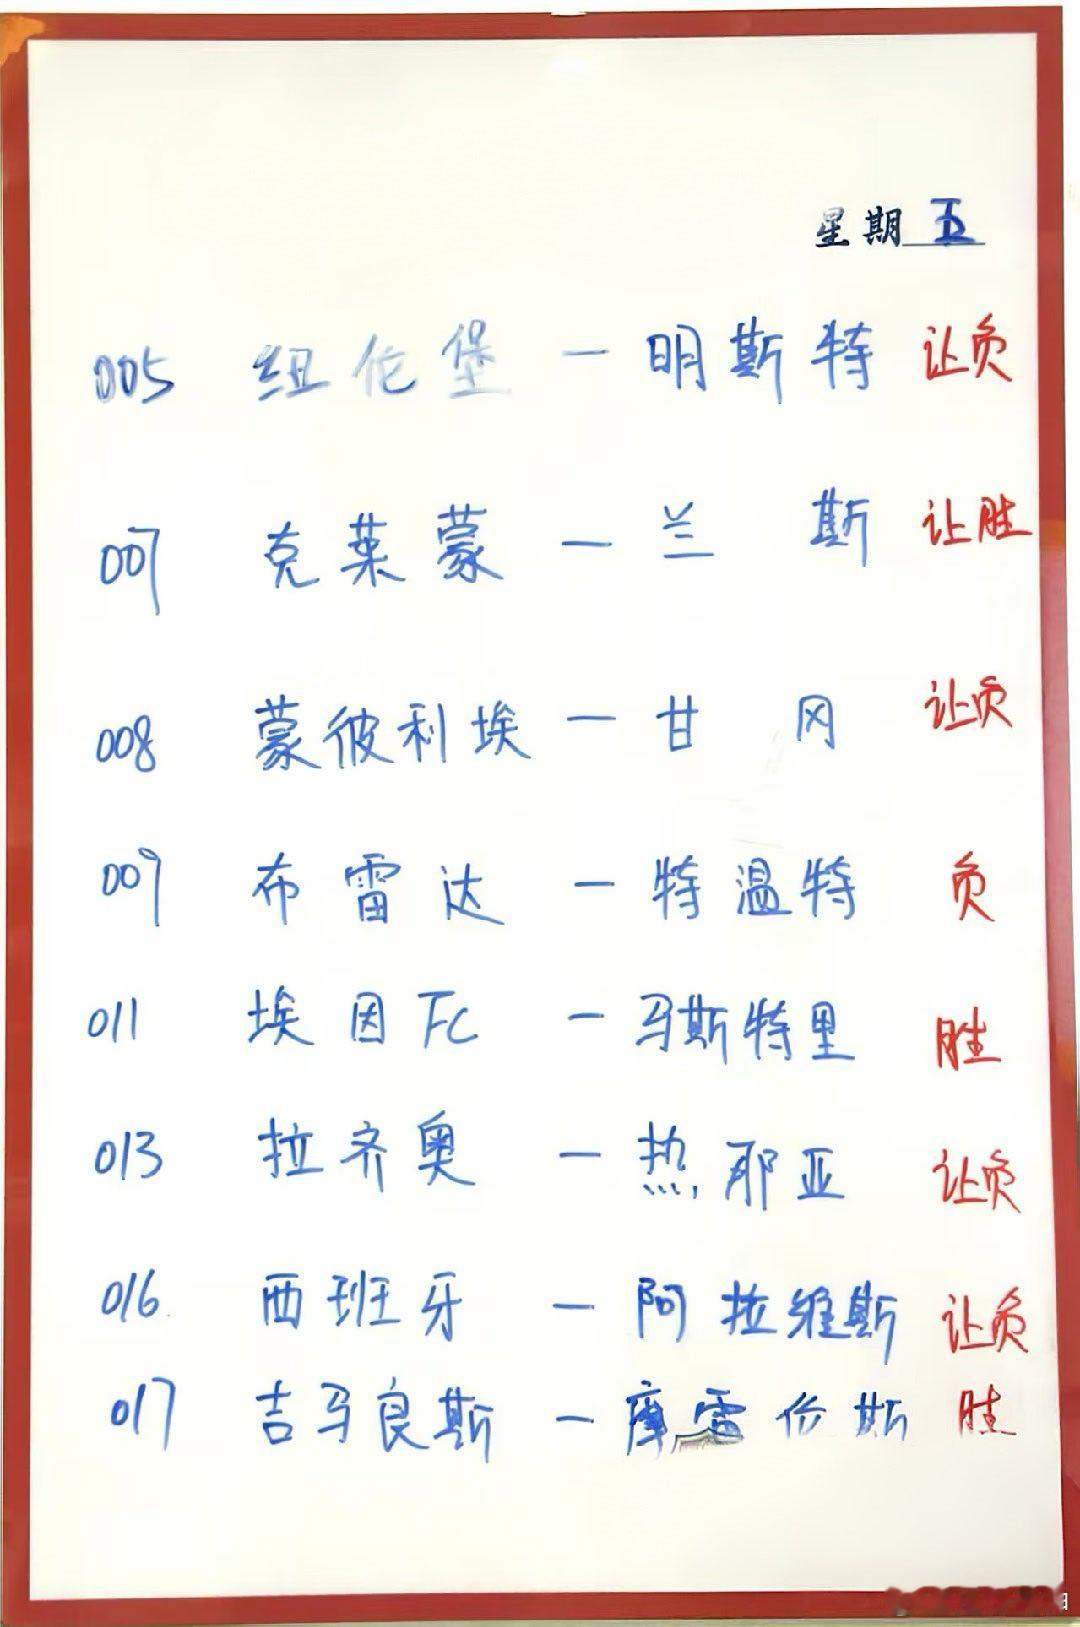 星期五
005 纽伦堡 — 明斯特 让负
007 克莱蒙 — 兰斯 让胜
008 蒙彼利埃 — 甘冈 让负
009 布雷达 — 特温特 负
011 埃因FC — 马斯特里 胜
013 拉齐奥 — 热耶亚 让负
016 西班牙 — 阿拉维斯 让负
017 吉马良斯 — 摩雷伦斯 胜